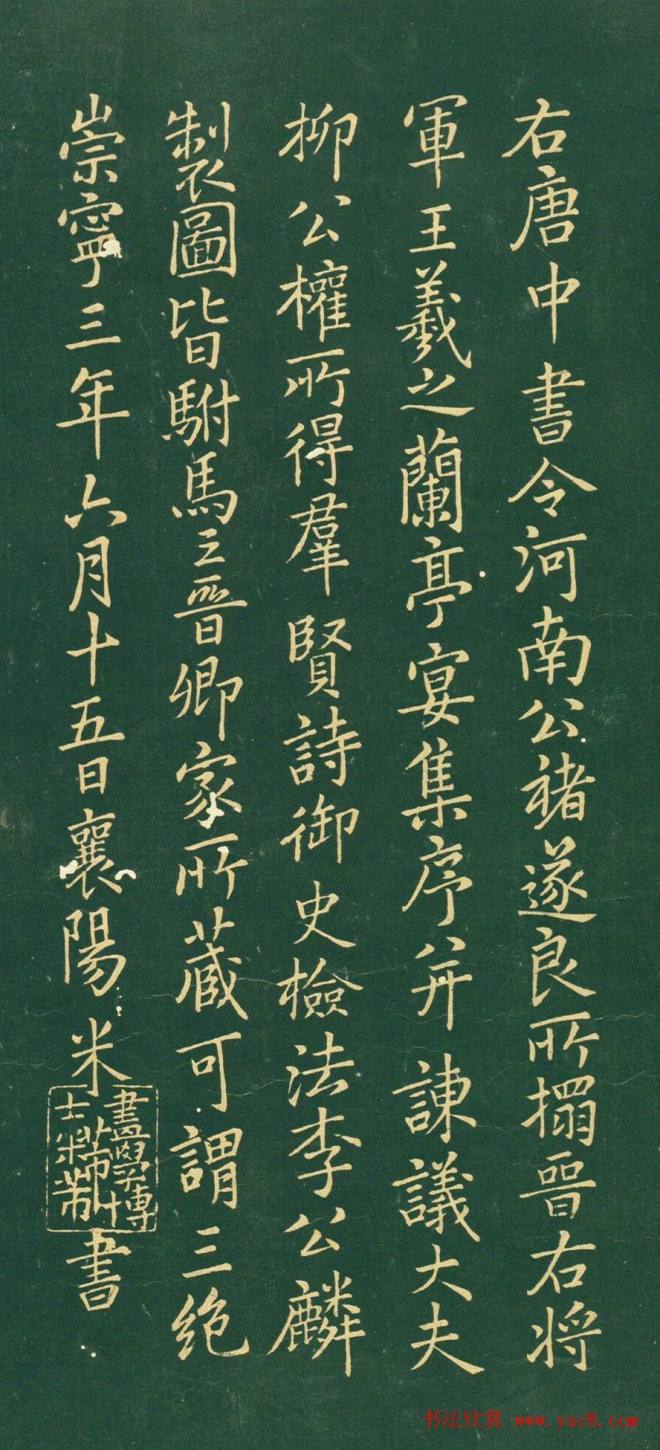 右唐中書令河南公褚遂良所搨晉右將
軍王羲之蘭亭宴集序并諫議大夫
柳公權所得羣賢詩御史檢法李公麟
製圖皆駙馬王晉卿家所蔵可謂三絶
崇寧三年六月十五日襄陽米
書
書法欣赏 www.yac8.com